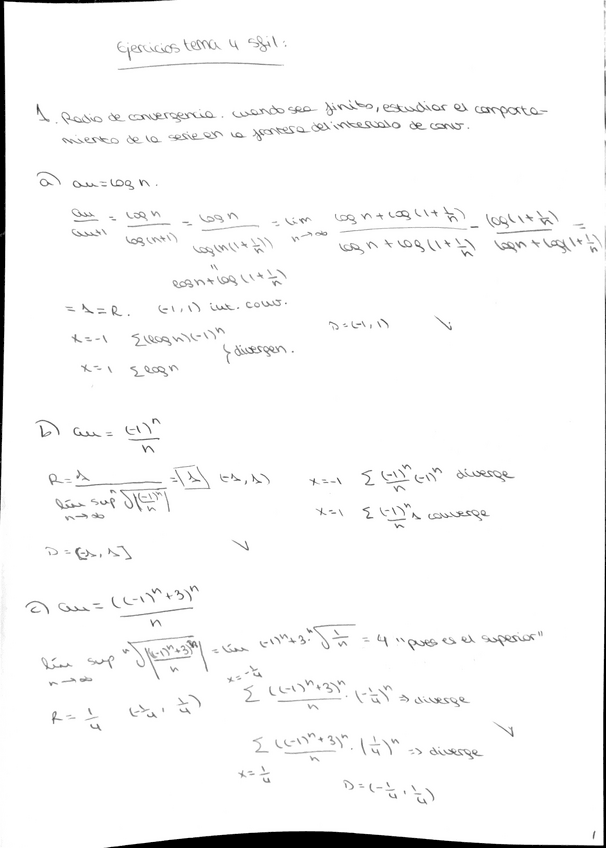 Ejercicios tema 4 sfil:
1. Radio de convergencia. cuando sea finito, estudiar el comporta-
miento de la serie en la frontera del intervalo de conv.
a) an = log n.
an/an+1 = log n/log(n+1) = log n/log(n(1+1/n)) = lim n→∞ (log n + log(1+1/n))/(log n + log(1+1/n)) - log(1+1/n)/(log n + log(1+1/n)) =
"
log n + log(1+1/n)
= 1 = R. (-1,1) int. conv.
x=-1 Σ(log n)(-1)^n
} divergen. D=(-1,1) V
x=1 Σ log n
b) an = (-1)^n/n
R = 1/(lím sup n→∞ ⁿ√|(-1)^n/n|) = 1 (-1,1) x=-1 Σ (-1)^n/n (-1)^n diverge
x=1 Σ (-1)^n/n 1 converge
D=(-1,1] V
c) an = ((-1)^n+3)^n/n
lím sup n→∞ ⁿ√|((-1)^n+3)^n/n| = lím (-1)^n+3· ⁿ√(1/n) = 4 "pues es el superior"
x=-1/4
R = 1/4 (-1/4, 1/4) Σ ((-1)^n+3)^n/n · (-1/4)^n ⇒ diverge
V
Σ ((-1)^n+3)^n/n · (1/4)^n ⇒ diverge
x=1/4 D=(-1/4, 1/4)
1